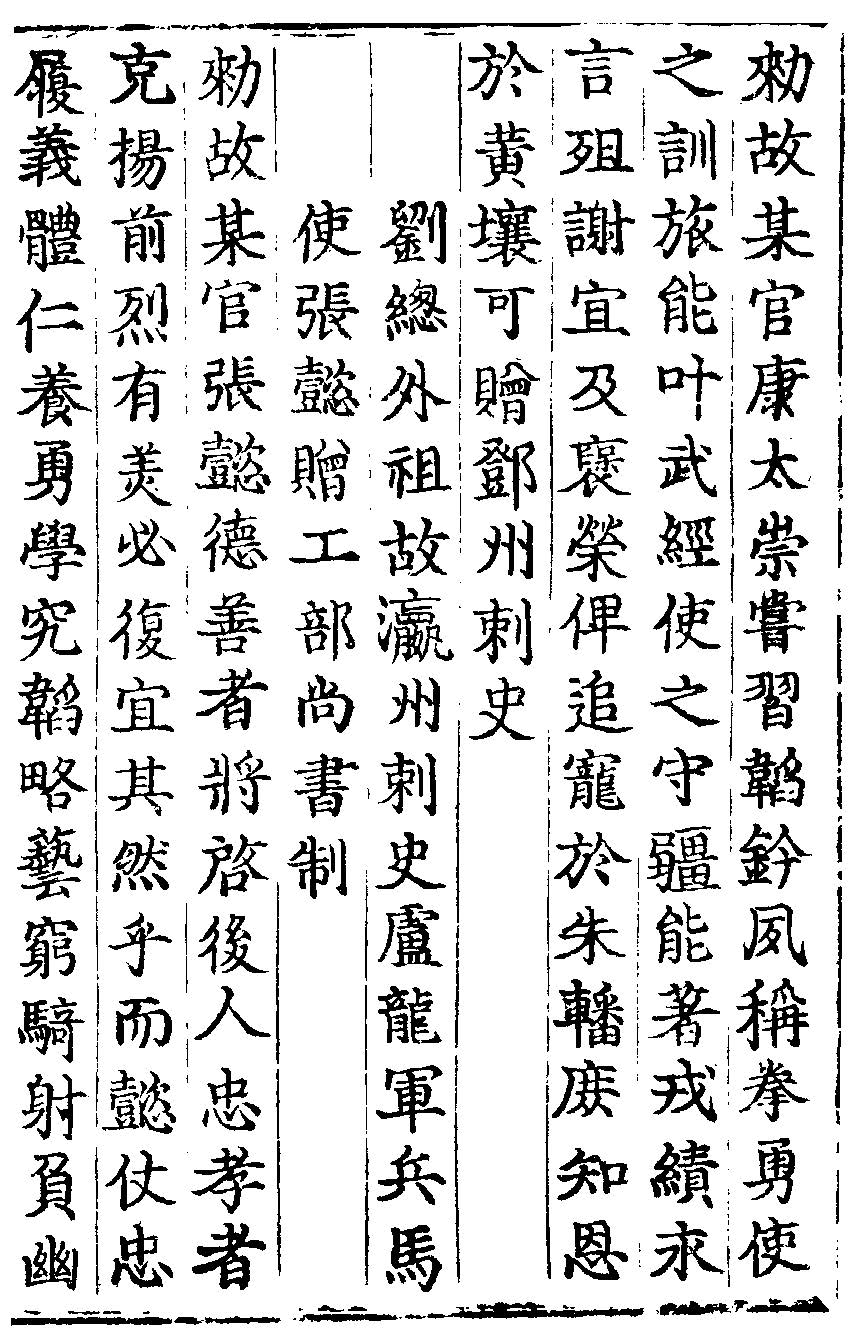 勑故某官康太崇嘗習韜鈐夙稱拳勇使
之訓旅能叶武經使之守疆能著戎績永
言殂謝宜及襃榮俾追寵於朱轓庶知恩
於黄壤可贈鄧州刺史
劉緫外祖故瀛州刺史盧龍軍兵馬
使張懿贈工部尚書制
勑故某官張懿德善者將啓後人忠孝者
克揚前烈有羙必復宜其然乎而懿仗忠
履義體仁養勇學究韜略藝窮騎射負幽